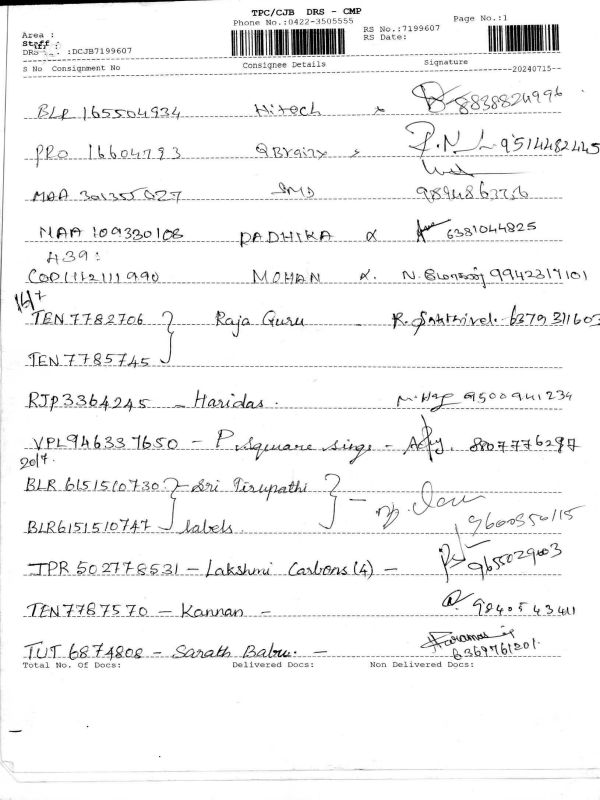 TPC/CJB DRS - CMP
Phone No.:0422-3505555
Page No.:1
Area :
RS No.:7199607
Staff :
RS Date:
DRS :DCJB7199607
S No Consignment No Consignee Details Signature
20240715
BLR 165504934 Hitech 8838824996
PRO 16604793 9514482445
MAA 301355027 9894863756
MAA 109330108 DADHIKA 6381044825
439:
COD1112111990 MOHAN N. மோகன் 9942317101
16/7
TEN 7782706 Raja Guru R. Sakthivel. 6379311603
TEN 7785745
RJP3364245 - Haridas. 9500941234
VPL946337650 - P Square sings - 8807776297
20/7.
BLR 6151510730 Sri Tirupathi
BLR6151510747 labels. 9600350115
JPR 502778531 - Lakshmi Carbons (4) - 9655029003
TEN7787570 - Kannan - 9840543411
TUT 6874808 - Sarath Babu. - 6369761201.
Total No. Of Docs: Delivered Docs: Non Delivered Docs: